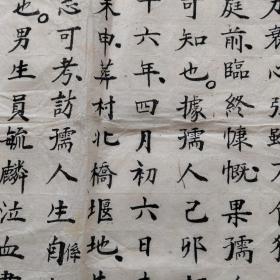 不
庭前臨終慷慨果孺
可知也。據孺人己卯
十六年四月初六日
未申葬村北橋堰地
可考訪孺人生自係
也。男生員毓麟泣血